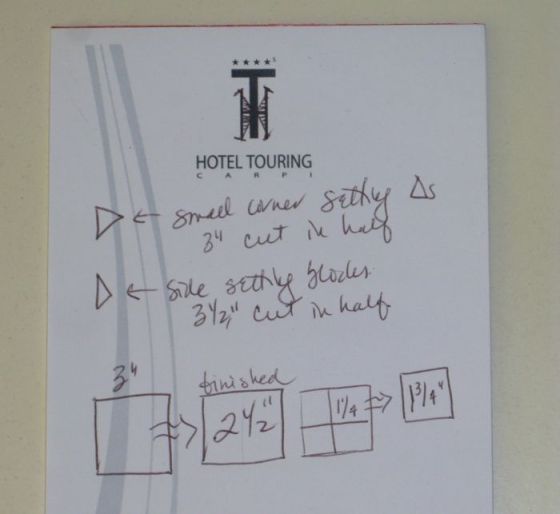 ★★★★S
T
H
HOTEL TOURING
CARPI
← small corner setting Δs
3" cut in half
← side setting blocks
3 1/2" cut in half
3"
finished
2 1/2"
1 1/4
1 3/4"